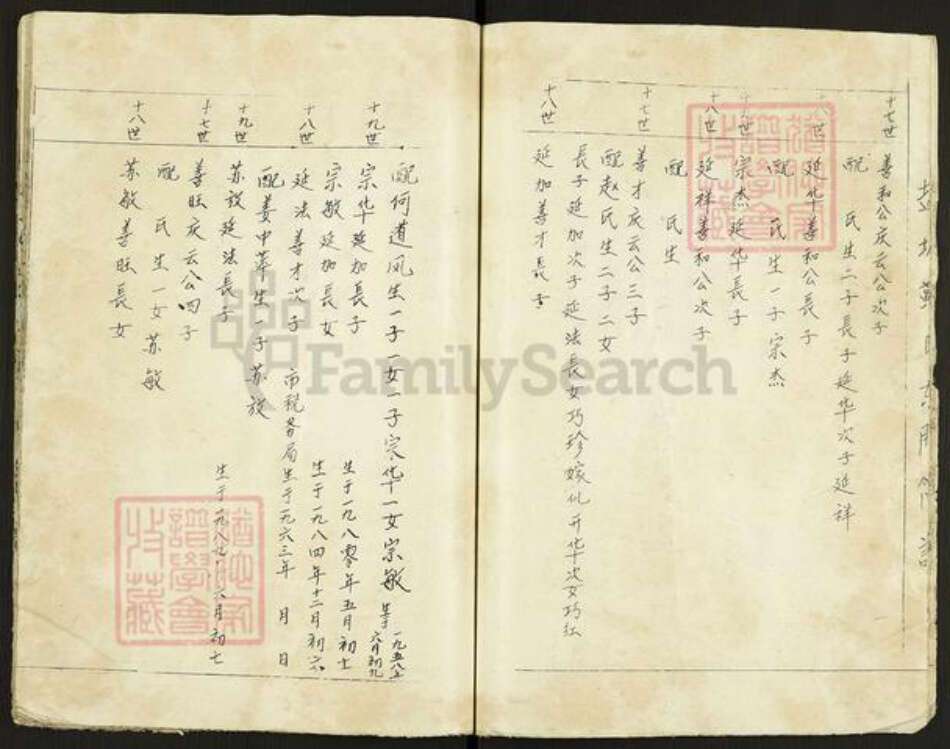 十七世 善和公庆云公次子
配 氏生二子長子延华次子延祥
十八世 延华善和公長子
配 氏生一子宗杰
十九世 宗杰延华長子
十八世 延祥善和公次子
配 氏生
十七世 善才庆云公三子
配赵氏生二子二女
長子延加次子延法長女巧珍嫁仇开华次女巧红
十八世 延加善才長子
配何道凤生一子一女一子宗华一女宗敏 一九五八年六月初九
十九世 宗华延加長子 生于一九八零年五月初七
宗敏延加長女 生于一九八四年十二月初六
十八世 延法善才次子 市税务局生于一九六三年 月 日
配姜中苹生一子苏放
十九世 苏放延法長子 生于一九八九年六月初七
十七世 善旺庆云公四子
配 氏生一女苏敏
十八世 苏敏善旺長女
FamilySearch